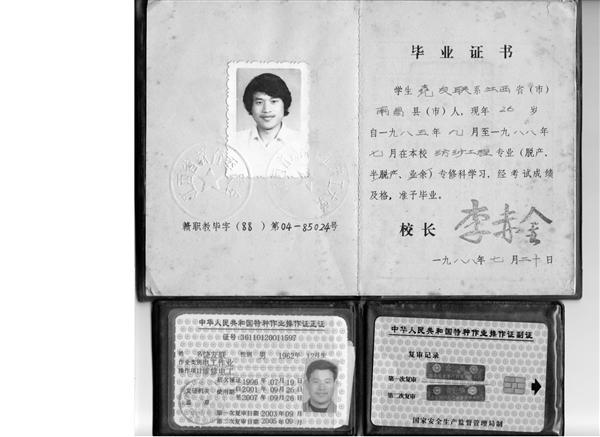 毕业证书
学生 尧友联 系江西省（市）
南昌县（市）人，现年 26 岁
自一九八五年 九 月至一九八八年
七 月在本校 纺纱工程 专业（脱产、
半脱产、业余）专修科学习，经考试成绩
及格，准予毕业。
校长 李赤全
一九八八年七月二十日
赣职教毕字（88）第04-85024号
中华人民共和国特种作业操作证正证
证号:36110120011597
姓名 性别 男 1962年 12月生
作业类别 电工作业
操作项目 维修电工
初次领证 1996年07月19日
发证机关 使用期 2001年09月26日
至2007年09月26日
第一次复审日期 2003年09月
第二次复审日期 2005年09月
中华人民共和国特种作业操作证副证
复审记录
第一次复审
第二次复审
国家安全生产监督管理局制